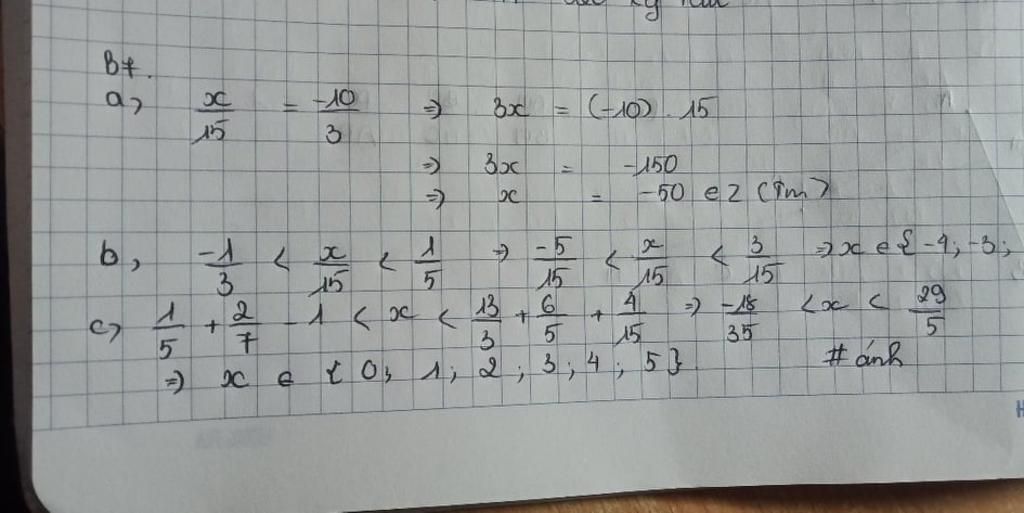 B7.
a, x/15 = -10/3 => 3x = (-10) . 15
=> 3x = -150
=> x = -50 e Z (Tm)
b, -1/3 < x/15 < 1/5 => -5/15 < x/15 < 3/15 => x e {-4; -3;
c, 1/5 + 2/7 - 1 < x < 13/3 + 6/5 + 4/15 => -18/35 < x < 29/5
=> x e {0; 1; 2; 3; 4; 5} # ánh